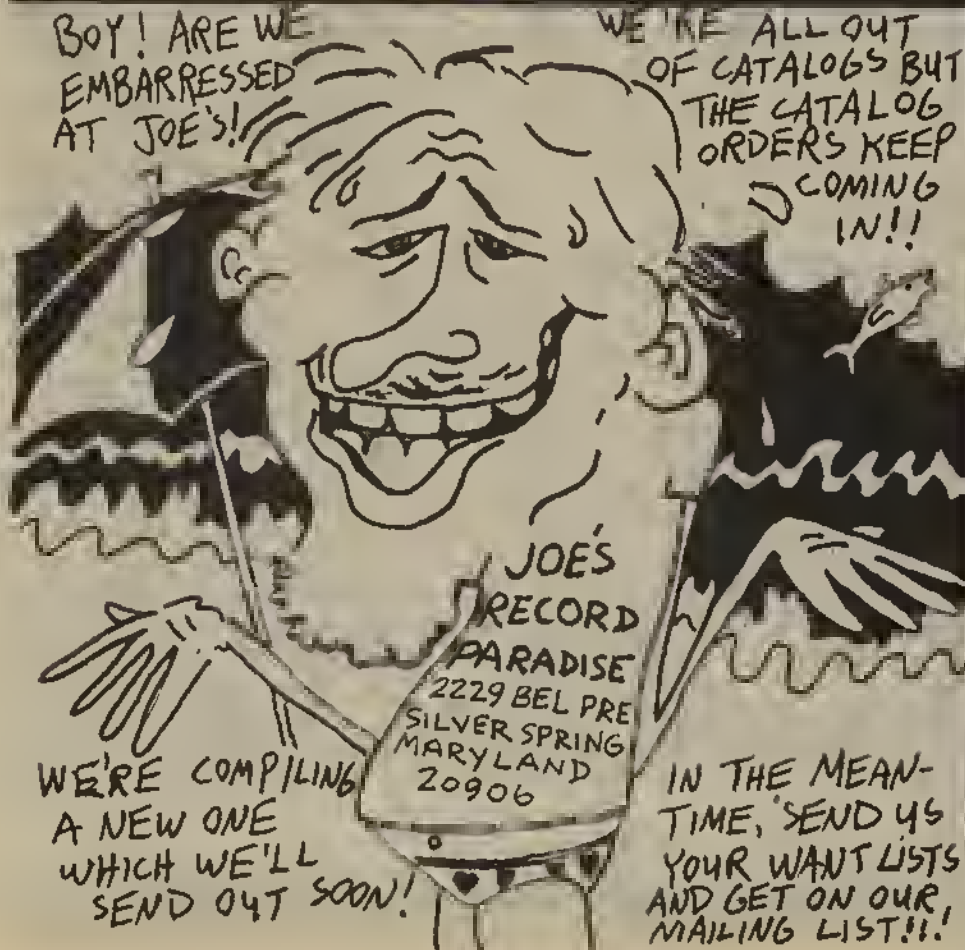 BOY! ARE WE
EMBARRESSED
AT JOE'S!
WE'RE ALL OUT
OF CATALOGS BUT
THE CATALOG
ORDERS KEEP
COMING
IN!!
JOE'S
RECORD
PARADISE
2229 BEL PRE
SILVER SPRING
MARYLAND
20906
WE'RE COMPILING
A NEW ONE
WHICH WE'LL
SEND OUT SOON!
IN THE MEAN-
TIME, SEND US
YOUR WANT LISTS
AND GET ON OUR
MAILING LIST!!!